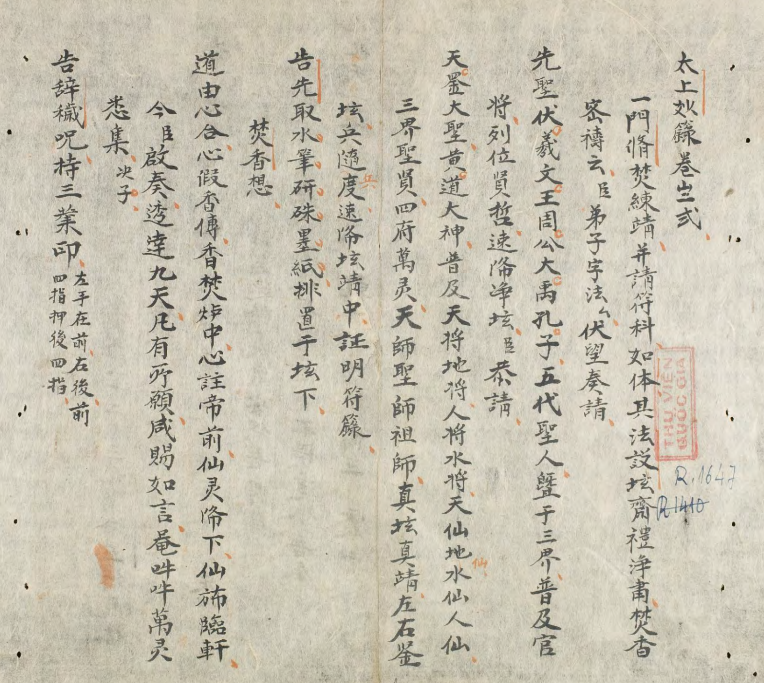 太上妙籙卷𠀧弍
一門脩焚練靖并請符科如体具法設坛齋禮淨肅焚香
密禱云臣弟子字法厶伏望奏請
先聖伏羲文王周公大禹孔子五代聖人曁于三界普及官
將列位賢哲速降净坛臣恭請
天罡大聖黄道大神普及天将地将人将水将天仙地水仙人仙
仙
三界聖賢四府萬灵天師聖師祖師真坛真靖左右鉴
坛兵隨度速降坛靖中証明符籙
兵
告先取水筆研硃墨紙排置于坛下
焚香想
道由心合心假香傳香焚炉中心註帝前仙灵降下仙斾臨軒
今臣啟奏透達九天凡有所願咸賜如言菴吽吽萬灵
悉集次子
告辞穢呪持三業印左手在前右後前
四指押後四指
THƯ VIỆN
QUỐC GIA
R.1647
R.1410